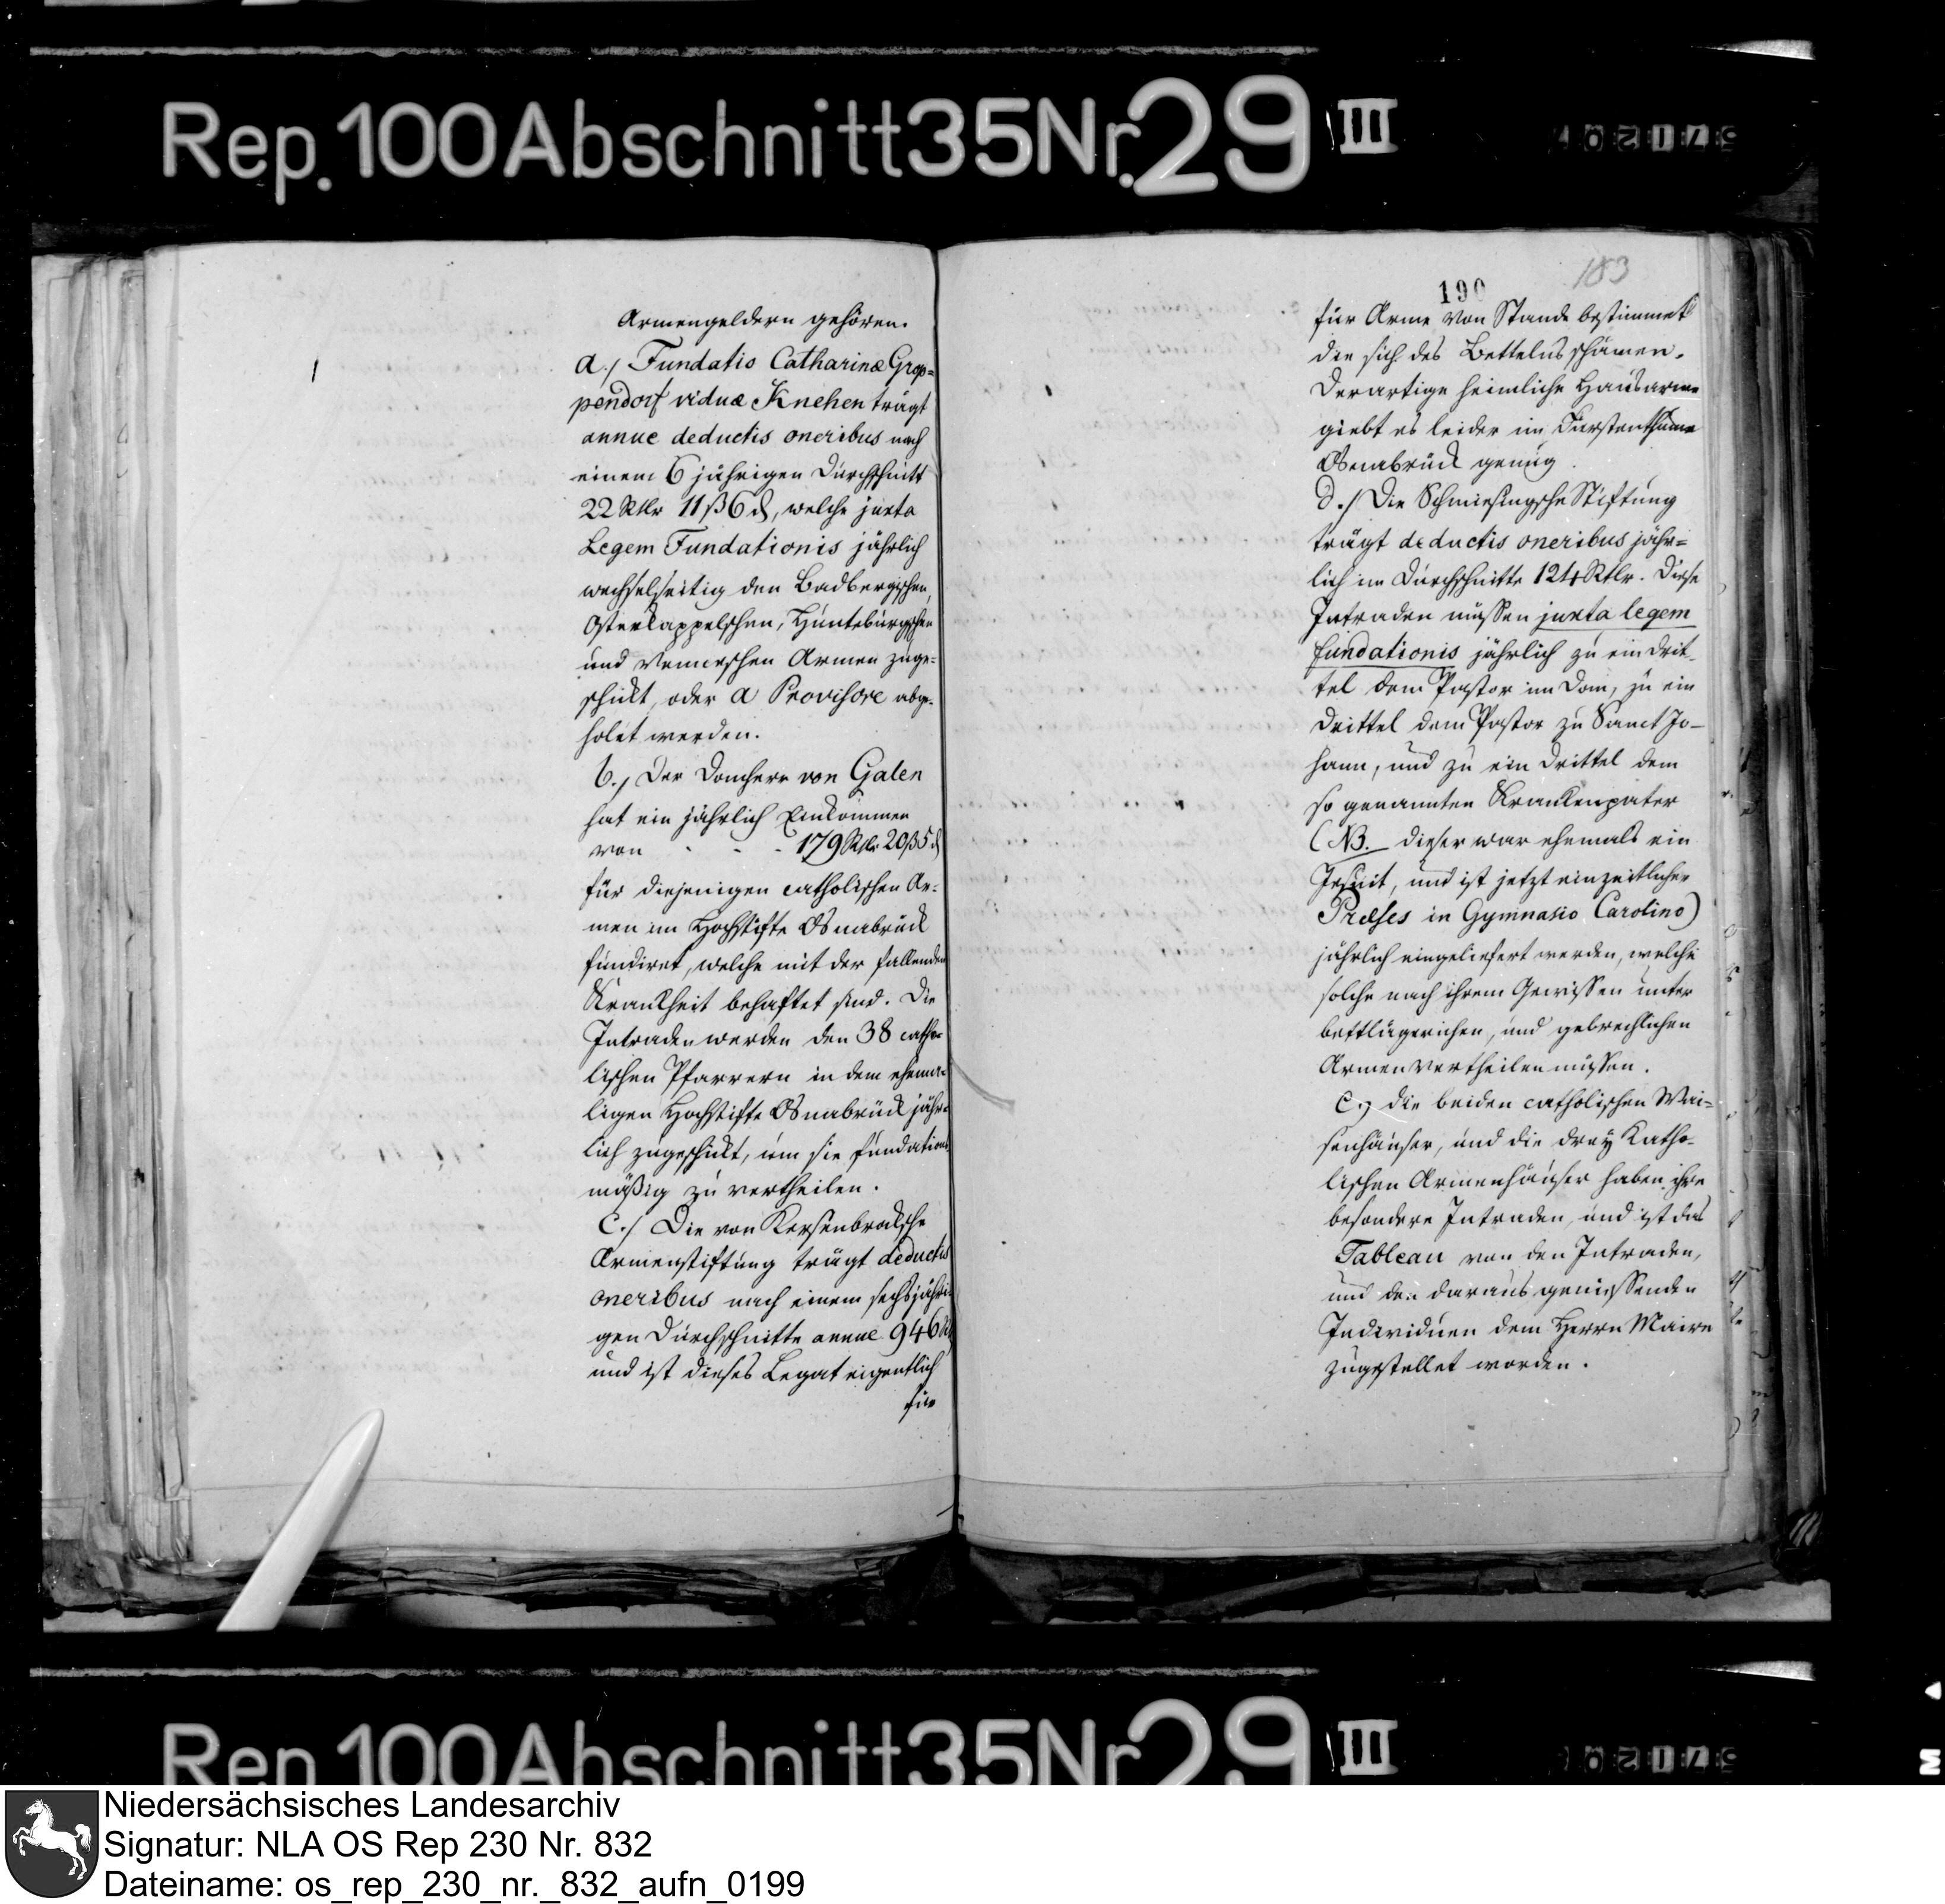 Rep. 100 Abschnitt 35 Nr. 29 III
Armengeldern gehören.
a./ Fundatio Catharinæ Grop=
pendorf viduæ Knehen trägt
annue deductis oneribus nach
einem 6 jährigen Durchschnitt
22 Rtlr 11 ß 6 d, welche juxta
Legem Fundationis jährlich
wechselseitig den Badbergischen,
Osterkappelschen, Hunteburgschen
und Venneschen Armen zuge=
schickt, oder a Provisore abge=
holet werden.
b./ Der Domherr von Galen
hat ein jährlich Einkommen
von - - - 179 Rtlr 20 ß 5 d
für diejenigen catholischen Ar=
men im Hochstifte Osnabrück
fundiret, welche mit der fallenden
Krankheit behaftet sind. Die
Intraden werden den 38 catho=
lischen Pfarrern in dem ehema=
ligen Hochstifte Osnabrück jähr=
lich zugeschickt, um sie fundations
mäßig zu vertheilen.
c./ Die von Kersenbroksche
Armenstiftung trägt deductis
oneribus nach einem sechsjähri=
gen Durchschnitte annue 946 Rtlr
und ist dieses Legat eigentlich
für
183
190
für Arme von Stande bestimmet
die sich des Bettelns schämen.
Derartige heimliche Hausarme
giebt es leider im Fürstenthume
Osnabrück genug.
d./ Die Schmiesingsche Stiftung
trägt deductis oneribus jähr=
lich im Durchschnitte 124 Rtlr. Diese
Intraden müssen juxta legem
fundationis jährlich zu ein Drit=
tel dem Pastor im Dom, zu ein
Drittel dem Pastor zu Sanct Jo=
hann, und zu ein Drittel dem
so genannten Krankenpater
(NB. dieser war ehemals ein
Jesuit, und ist jetzt ein zeitlicher
Præses in Gymnasio Carolino)
jährlich eingeliefert werden, welche
solche nach ihrem Gewissen unter
bettlägerichen, und gebrechlichen
Armen vertheilen müssen.
e./ die beiden catholischen Wai=
senhäuser, und die drey Katho=
lischen Armenhäuser haben ihre
besondere Intraden, und ist das
Tableau von den Intraden,
und den daraus geniessenden
Individuen dem Herrn Maire
zugestellet worden.
Rep. 100 Abschnitt 35 Nr. 29 III
Niedersächsisches Landesarchiv
Signatur: NLA OS Rep 230 Nr. 832
Dateiname: os_rep_230_nr._832_aufn_0199